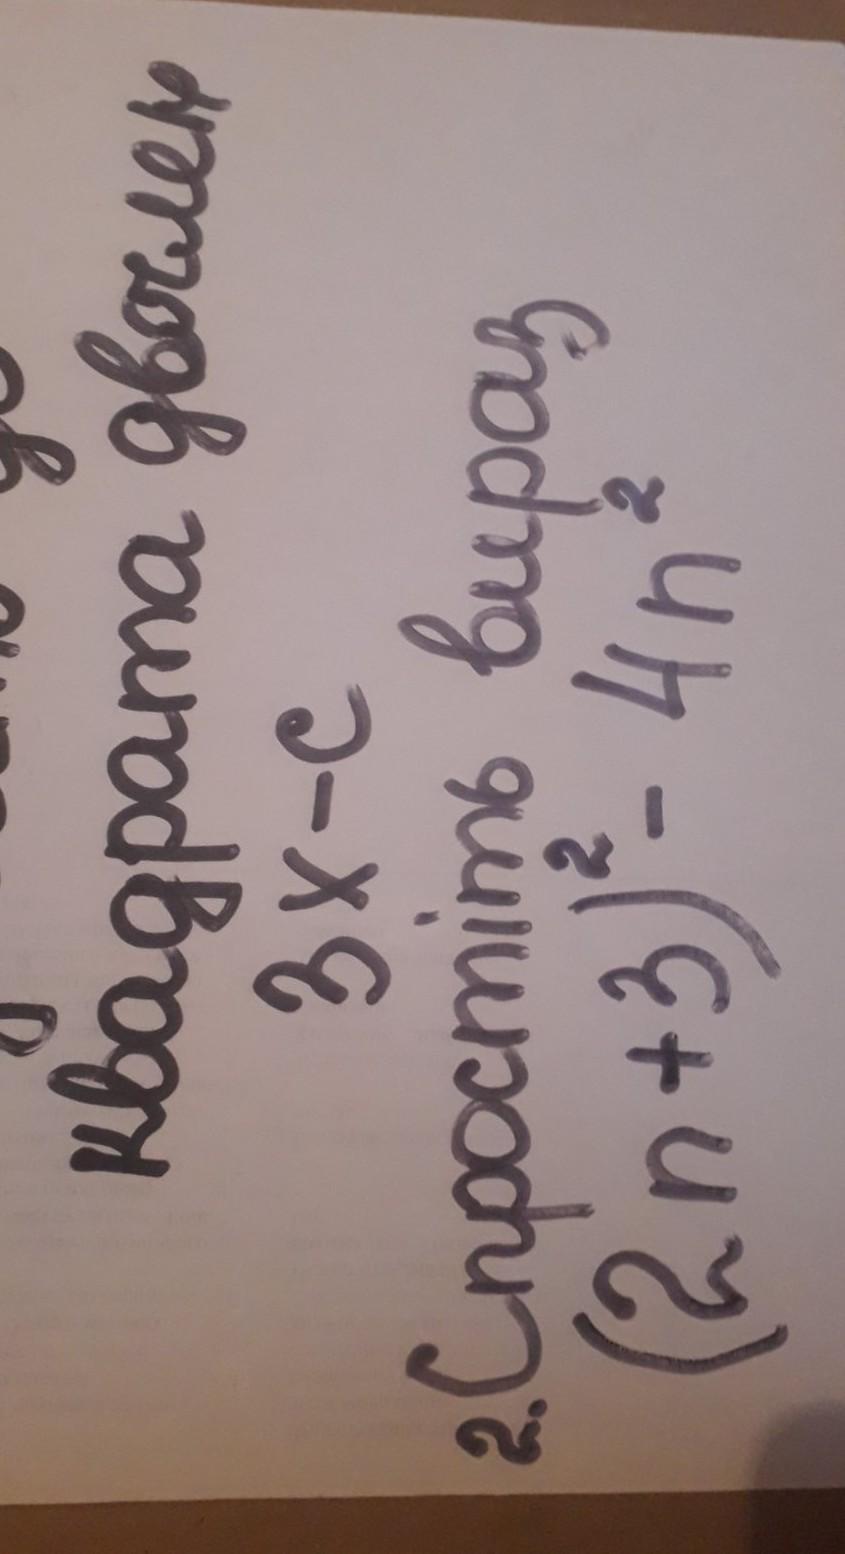 квадрата двочлен
3x-c
2. Спростіть вираз
(2n+3)²- 4n²